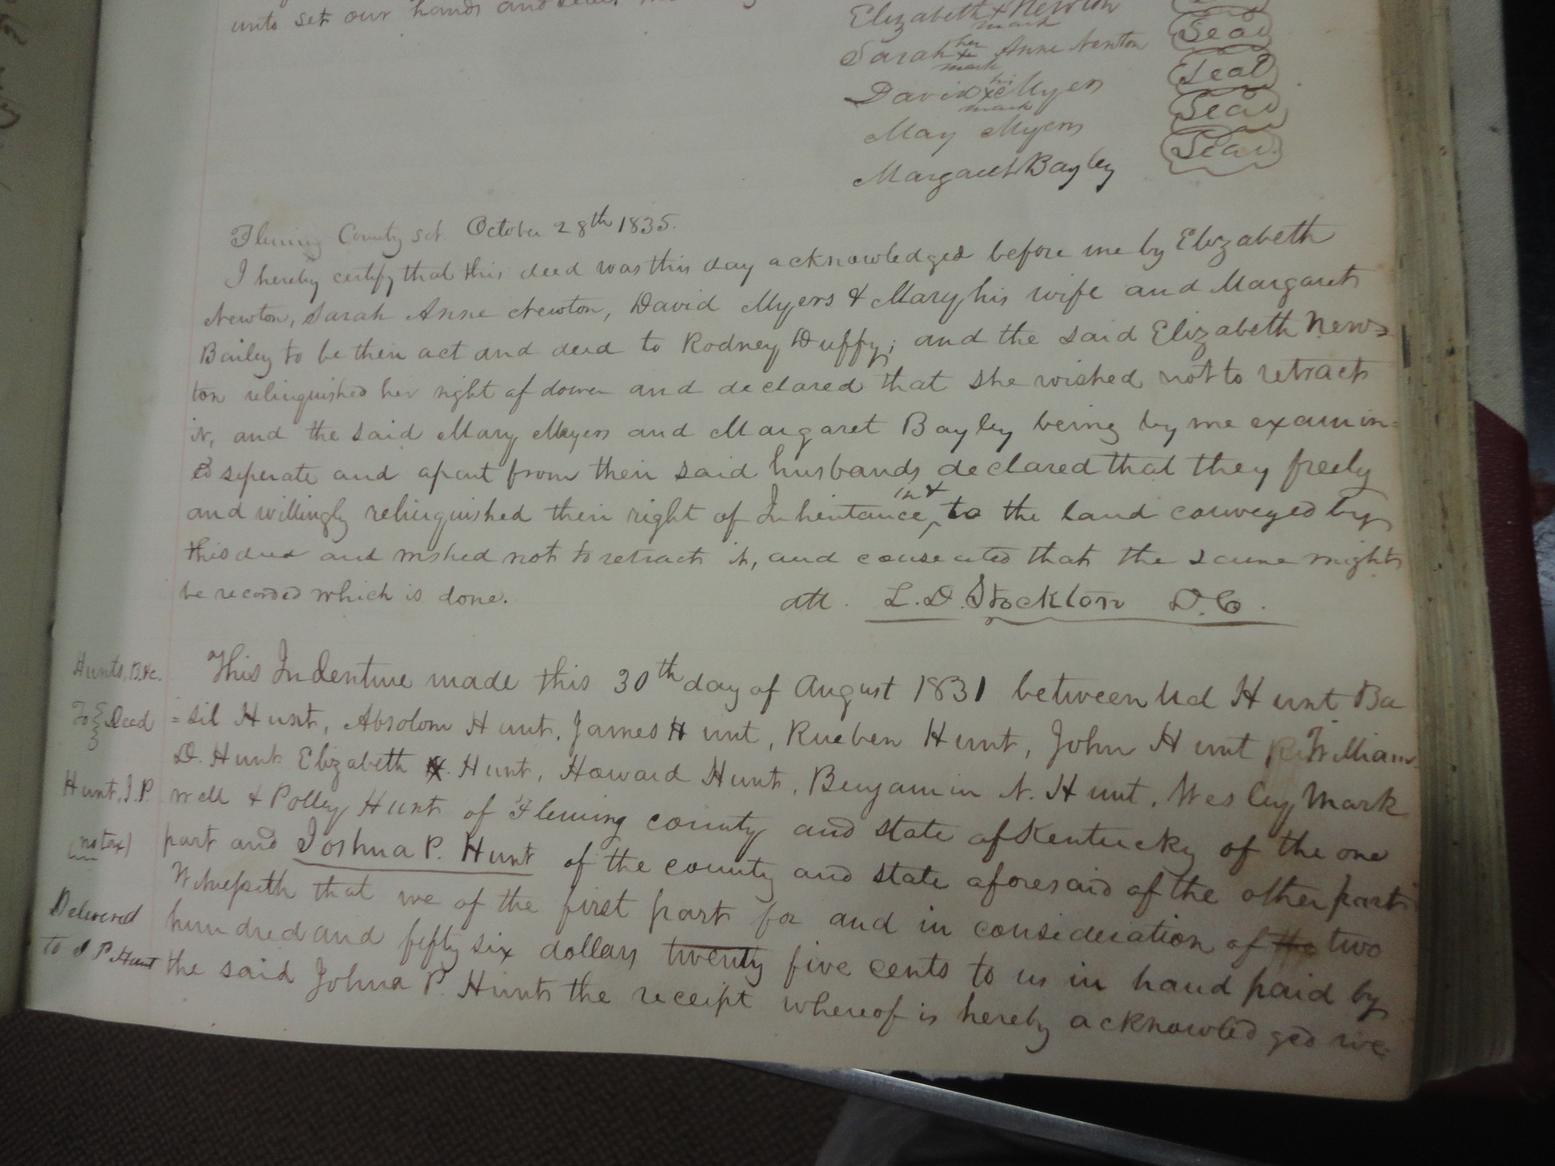 unto set our hands and seals
Elizabeth x Newton
mark
Seal
her
Sarah x Anne Newton
mark
Seal
his
David x Myers
mark
Seal
May Myers
Seal
Margaret Bayley
Fleming County sct. October 28th 1835.
I hereby certify that this deed was this day acknowledged before me by Elizabeth
Newton, Sarah Anne Newton, David Myers & Mary his wife and Margaret
Bailey to be their act and deed to Rodney Duffy; and the said Elizabeth New=
ton relinquished her right of dower and declared that she wished not to retract
it, and the said Mary Myers and Margaret Bayley being by me examin=
ed seperate and apart from their said husbands declared that they freely
and willingly relinquished their right of Inheritance in & to the land conveyed by
this deed and wished not to retract it, and consented that the same might
be recorded which is done.
att. L. D. Stockton D.C.
Hunts, B.&c.
To Deed
Hunt, J.P.
(no tax)
Delivered
to J P. Hunt
This Indenture made this 30th day of August 1831 between Ud Hunt Ba
=sil Hunt, Absolom Hunt, James Hunt, Rueben Hunt, John Hunt William
D. Hunt Elizabeth Hunt, Howard Hunt, Benjamin N. Hunt, Wesley Mark
well & Polley Hunt of Fleming county and state of Kentucky of the one
part and Joshua P. Hunt of the county and state aforesaid of the other part
Witnesseth that we of the first part for and in consideration of the two
hundred and fifty six dollars twenty five cents to us in hand paid by
the said Johua P. Hunt the receipt whereof is hereby acknowledged we